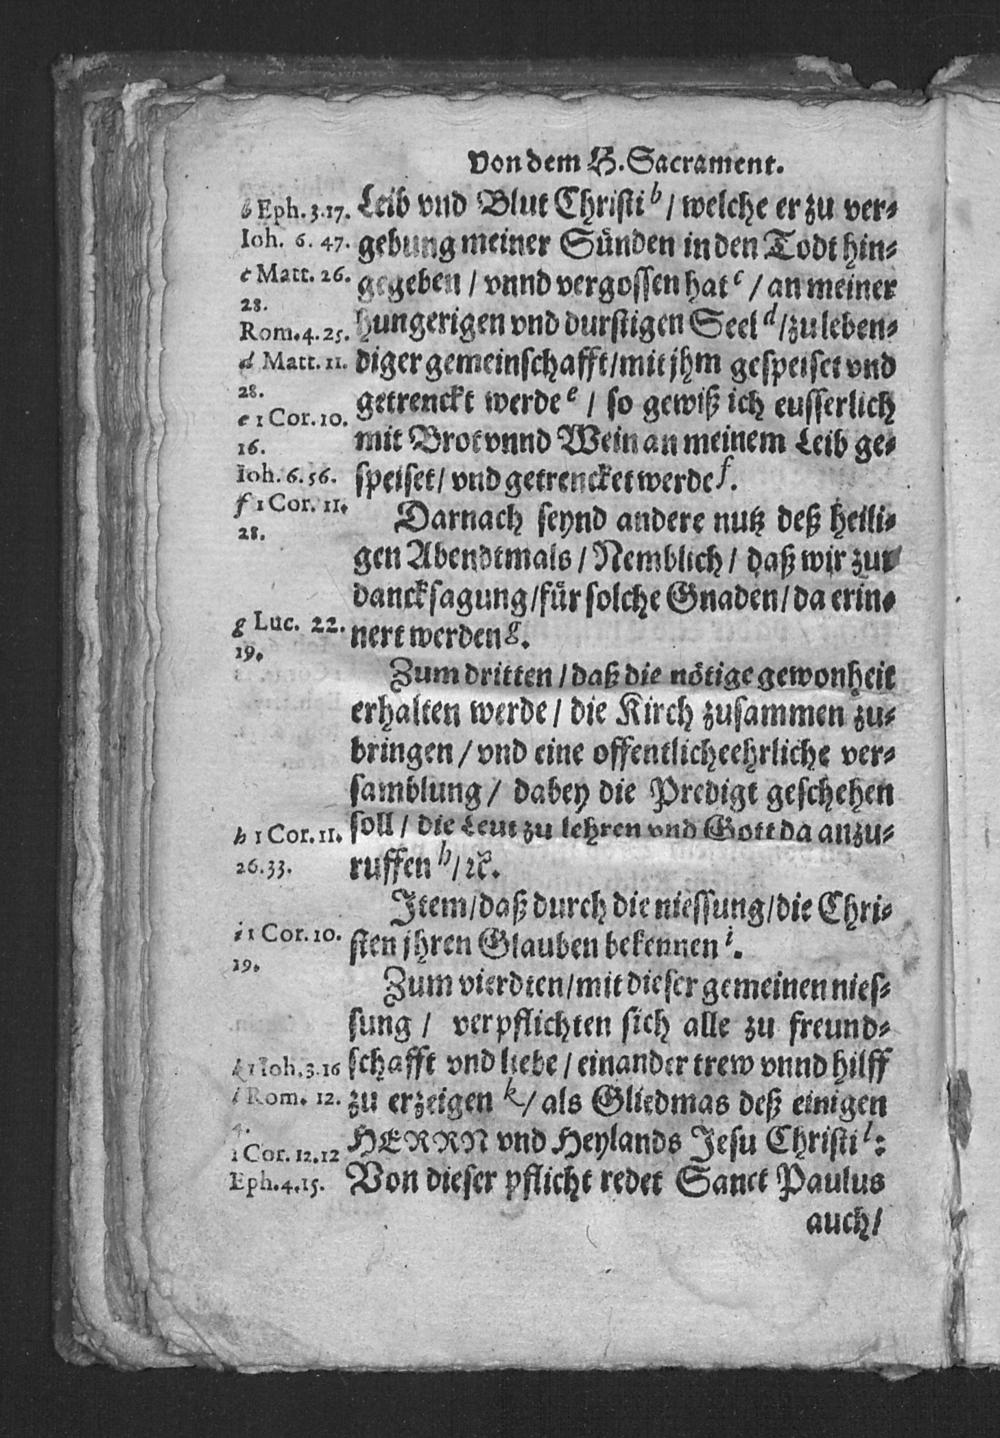 Von dem H. Sacrament.
Leib vnd Blut Christi b / welche er zu ver-
gebung meiner Sünden in den Todt hin-
gegeben / vnnd vergossen hat c / an meiner
hungerigen vnd durstigen Seel d / zu leben-
diger gemeinschafft / mit jhm gespeiset vnd
getrenckt werde e / so gewiß ich eusserlich
mit Brot vnnd Wein an meinem Leib ge-
speiset / vnd getrencket werde f.
Darnach seynd andere nutz deß heili-
gen Abendtmals / Nemblich / daß wir zur
dancksagung / für solche Gnaden / da erin-
nert werden g.
Zum dritten / daß die nötige gewonheit
erhalten werde / die Kirch zusammen zu-
bringen / vnd eine offentliche ehrliche ver-
samblung / dabey die Predigt geschehen
soll / die Leut zu lehren vnd Gott da anzu-
ruffen h / ꝛc.
Item / daß durch die niessung / die Chri-
sten jhren Glauben bekennen i.
Zum vierdten / mit dieser gemeinen nies-
sung / verpflichten sich alle zu freund-
schafft vnd liebe / einander trew vnnd hilff
zu erzeigen k / als Gliedmas deß einigen
HERRN vnd Heylands Jesu Christi l:
Von dieser pflicht redet Sanct Paulus
auch /
b Eph. 3. 17.
Ioh. 6. 47.
c Matt. 26.
28.
Rom. 4. 25.
d Matt. 11.
28.
e 1 Cor. 10.
16.
Ioh. 6. 56.
f 1 Cor. 11.
28.
g Luc. 22.
19.
h 1 Cor. 11.
26. 33.
i 1 Cor. 10.
19.
k 1 Ioh. 3. 16
l Rom. 12.
4.
1 Cor. 12. 12
Eph. 4. 15.